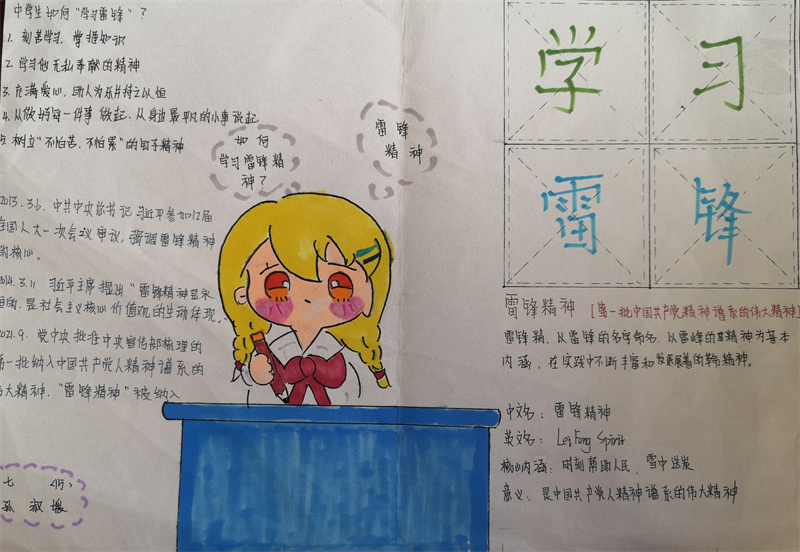 中学生如何“学习雷锋”？
1. 刻苦学习，掌握知识
2. 学习他无私奉献的精神
3. 充满爱心，助人为乐并持之以恒
4. 从做好每一件事做起，从身边最平凡的小事说起
5. 树立“不怕苦，不怕累”的钉子精神
如何
学习雷锋精
神？
雷锋
精神
学习
雷锋
2013.3.6. 中共中央总书记习近平参加12届
全国人大一次会议审议，强调雷锋精神
的核心。
2014.3.11 习近平主席提出“雷锋精神是永
恒的，是社会主义核心价值观的生动体现。
2021.9. 党中央批准中央宣传部梳理的
第一批纳入中国共产党人精神谱系的
伟大精神，“雷锋精神”被纳入
七
孙淑媛
雷锋精神 [第一批中国共产党精神谱系的伟大精神]
雷锋精，从雷锋的名字命名，从雷峰的精神为基本
内涵，在实践中不断丰富和发展着的精神。
中文名：雷锋精神
英文名：Lei Fong Spirit
核心内涵：时刻帮助人民，雪中送炭
意义：是中国共产党人精神谱系的伟大精神